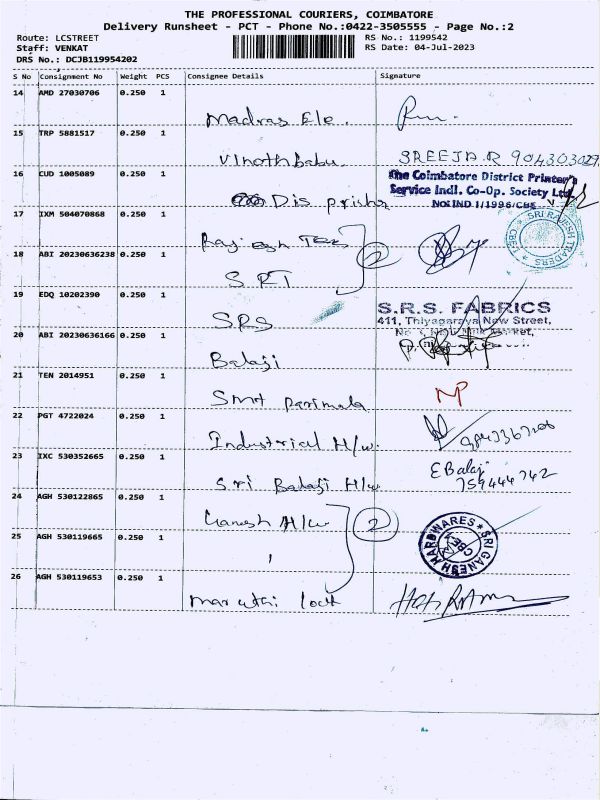 THE PROFESSIONAL COURIERS, COIMBATORE
Delivery Runsheet - PCT - Phone No.:0422-3505555 - Page No.:2
Route: LCSTREET
Staff: VENKAT
DRS No.: DCJB119954202
RS No.: 1199542
RS Date: 04-Jul-2023
S No Consignment No Weight PCS Consignee Details Signature
14 AMD 27030706 0.250 1
Madras Ele.
15 TRP 5881517 0.250 1
Vinothbabu SREEJA.R
16 CUD 1005089 0.250 1
The Coimbatore District Printer's
Service Indl. Co-Op. Society Ltd
No: IND.1/1996/CBE
Dis
17 IXM 504070868 0.250 1
Rajesh Tex 2
SRI RAJESH TRADERS CBE
18 ABI 20230636238 0.250 1
SRT
19 EDQ 10202390 0.250 1
SRS
S.R.S. FABRICS
411, Thiyagaraya New Street,
20 ABI 20230636166 0.250 1
Balaji
21 TEN 2014951 0.250 1
Smt parimala
22 PGT 4722024 0.250 1
Industrial H/w
23 IXC 530352665 0.250 1
Sri Balaji H/w E Balaji
24 AGH 530122865 0.250 1
Ganesh H/w 2
SRI GANESH HARDWARES CBE
25 AGH 530119665 0.250 1
26 AGH 530119653 0.250 1